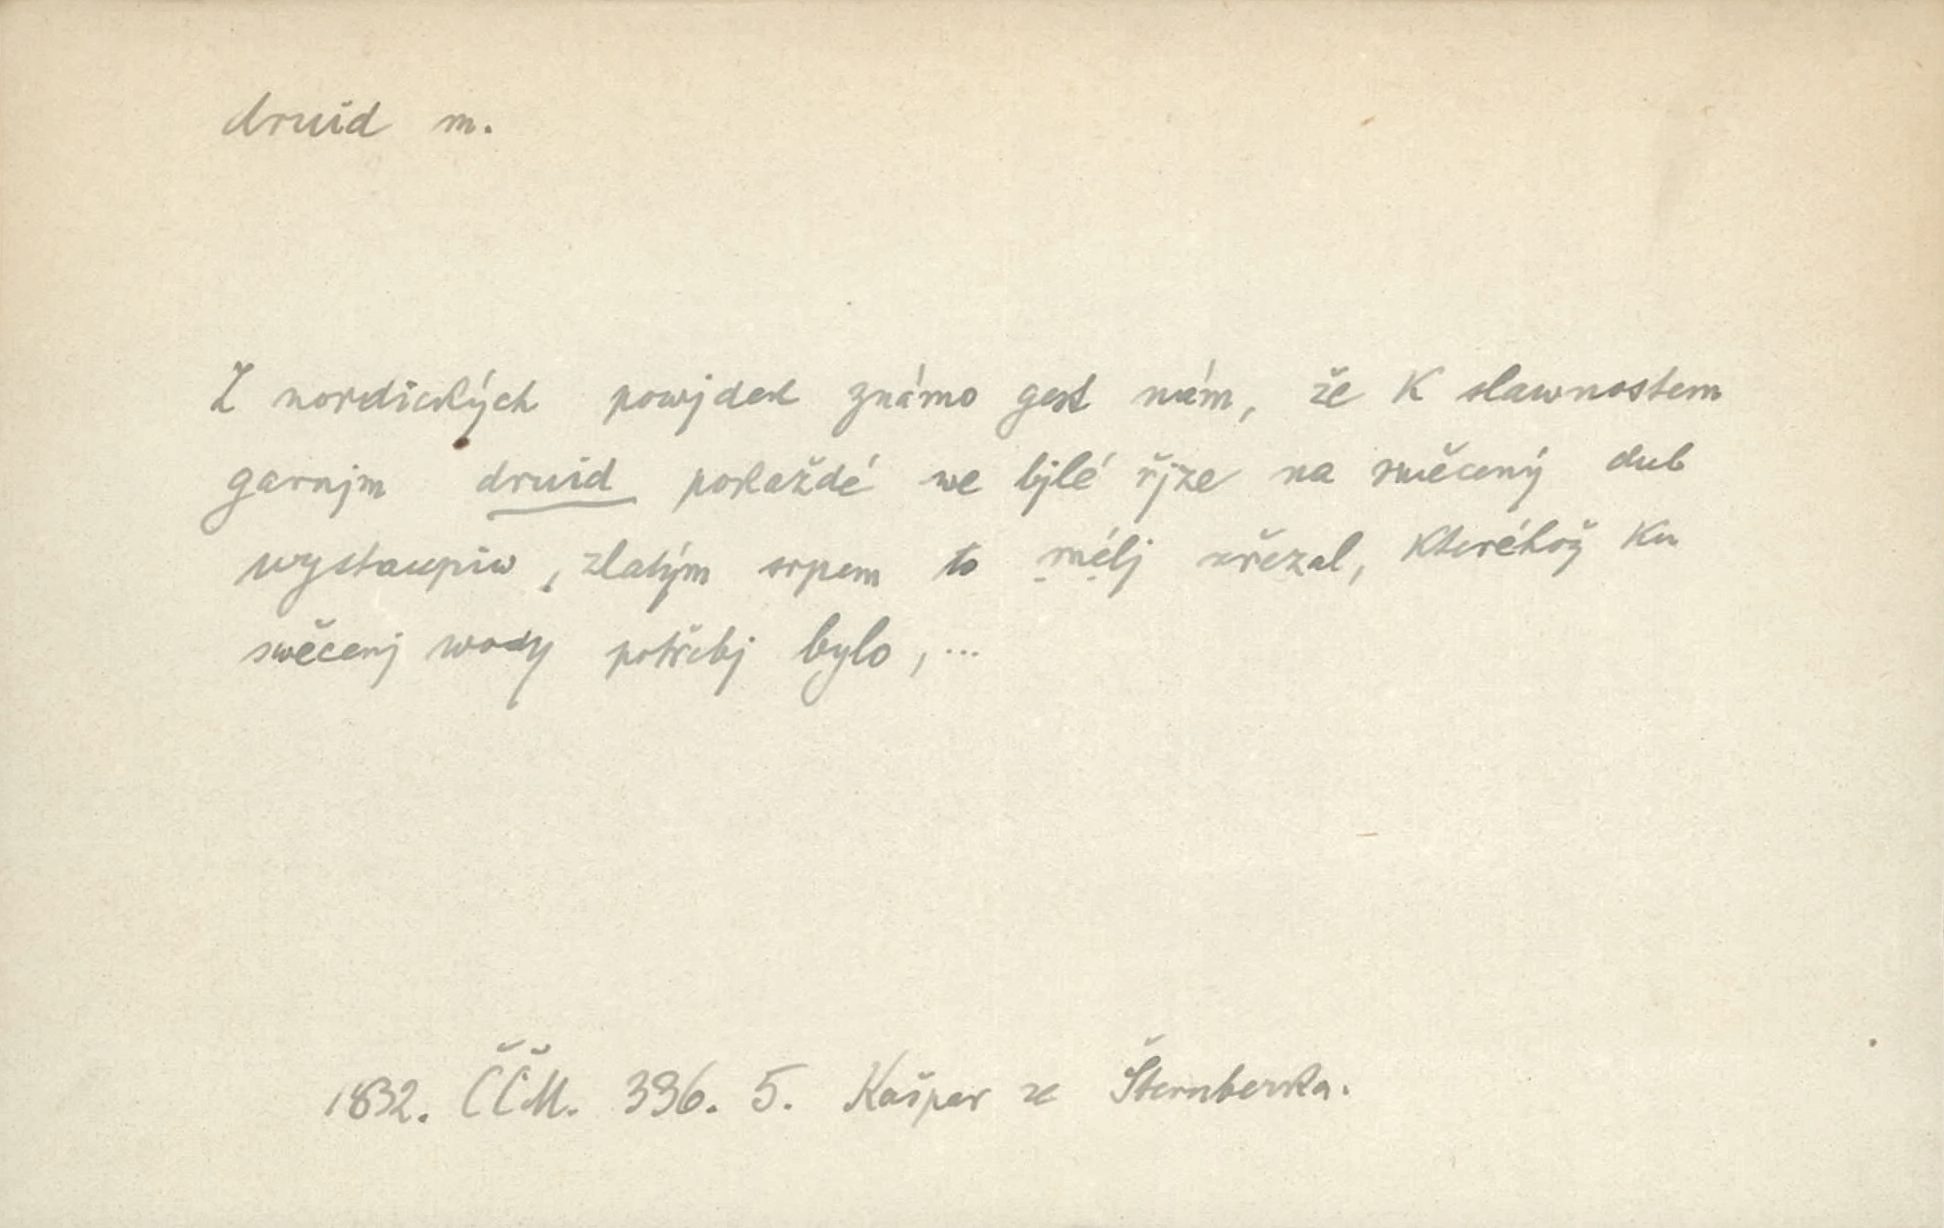 druid m.
Z nordických powjdek známo gest nám, že k slawnostem
garnjm druid pokaždé we bjlé řjze na swěcený dub
wystaupiw, zlatým srpem to mélj uřezal, kteréhož ku
swěcenj wody potřebj bylo, ...
1832. ČČM. 396. 5. Kašpar ze Šternberka.